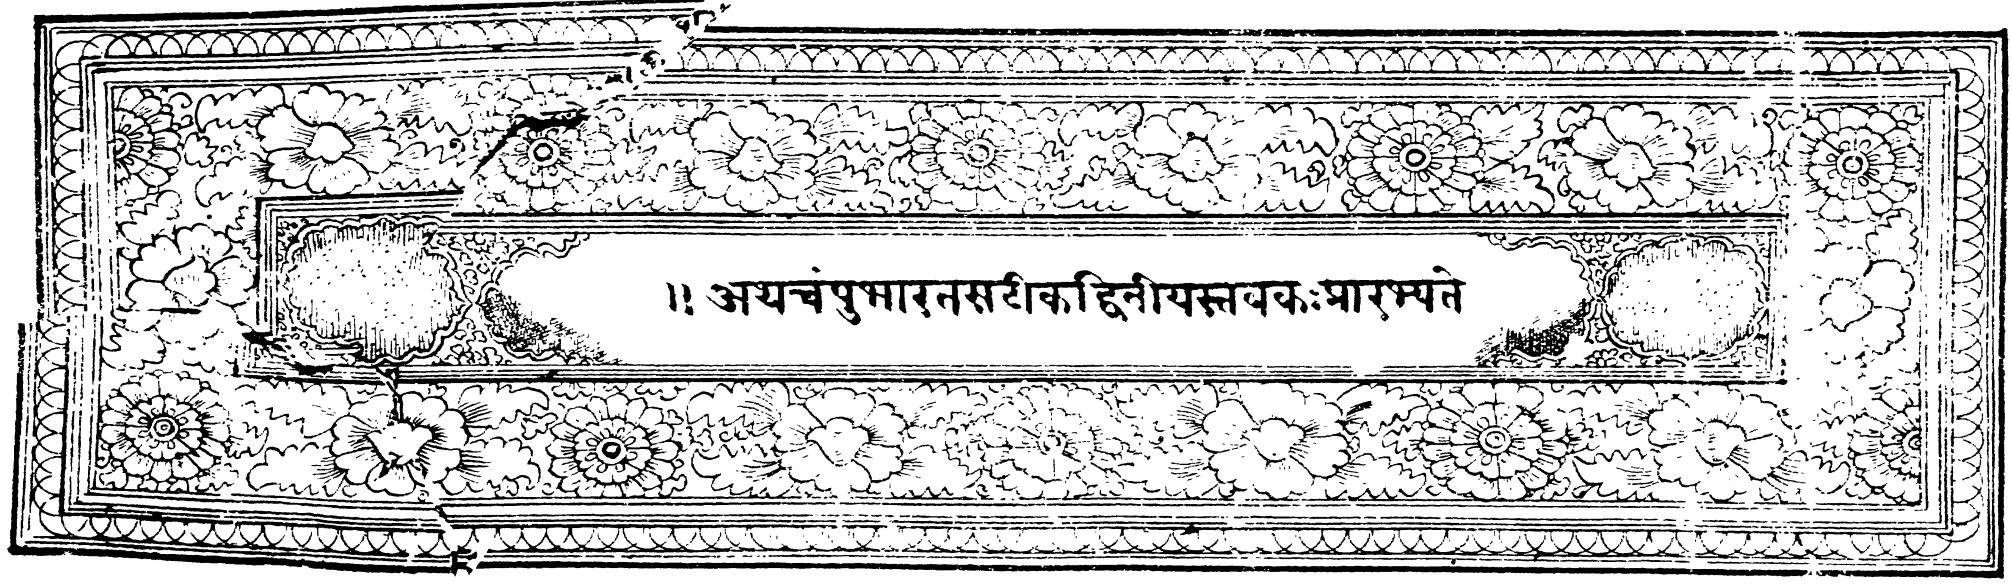 ।। अथचंपुभारतसटीकद्वितीयस्तबकःप्रारभ्यते